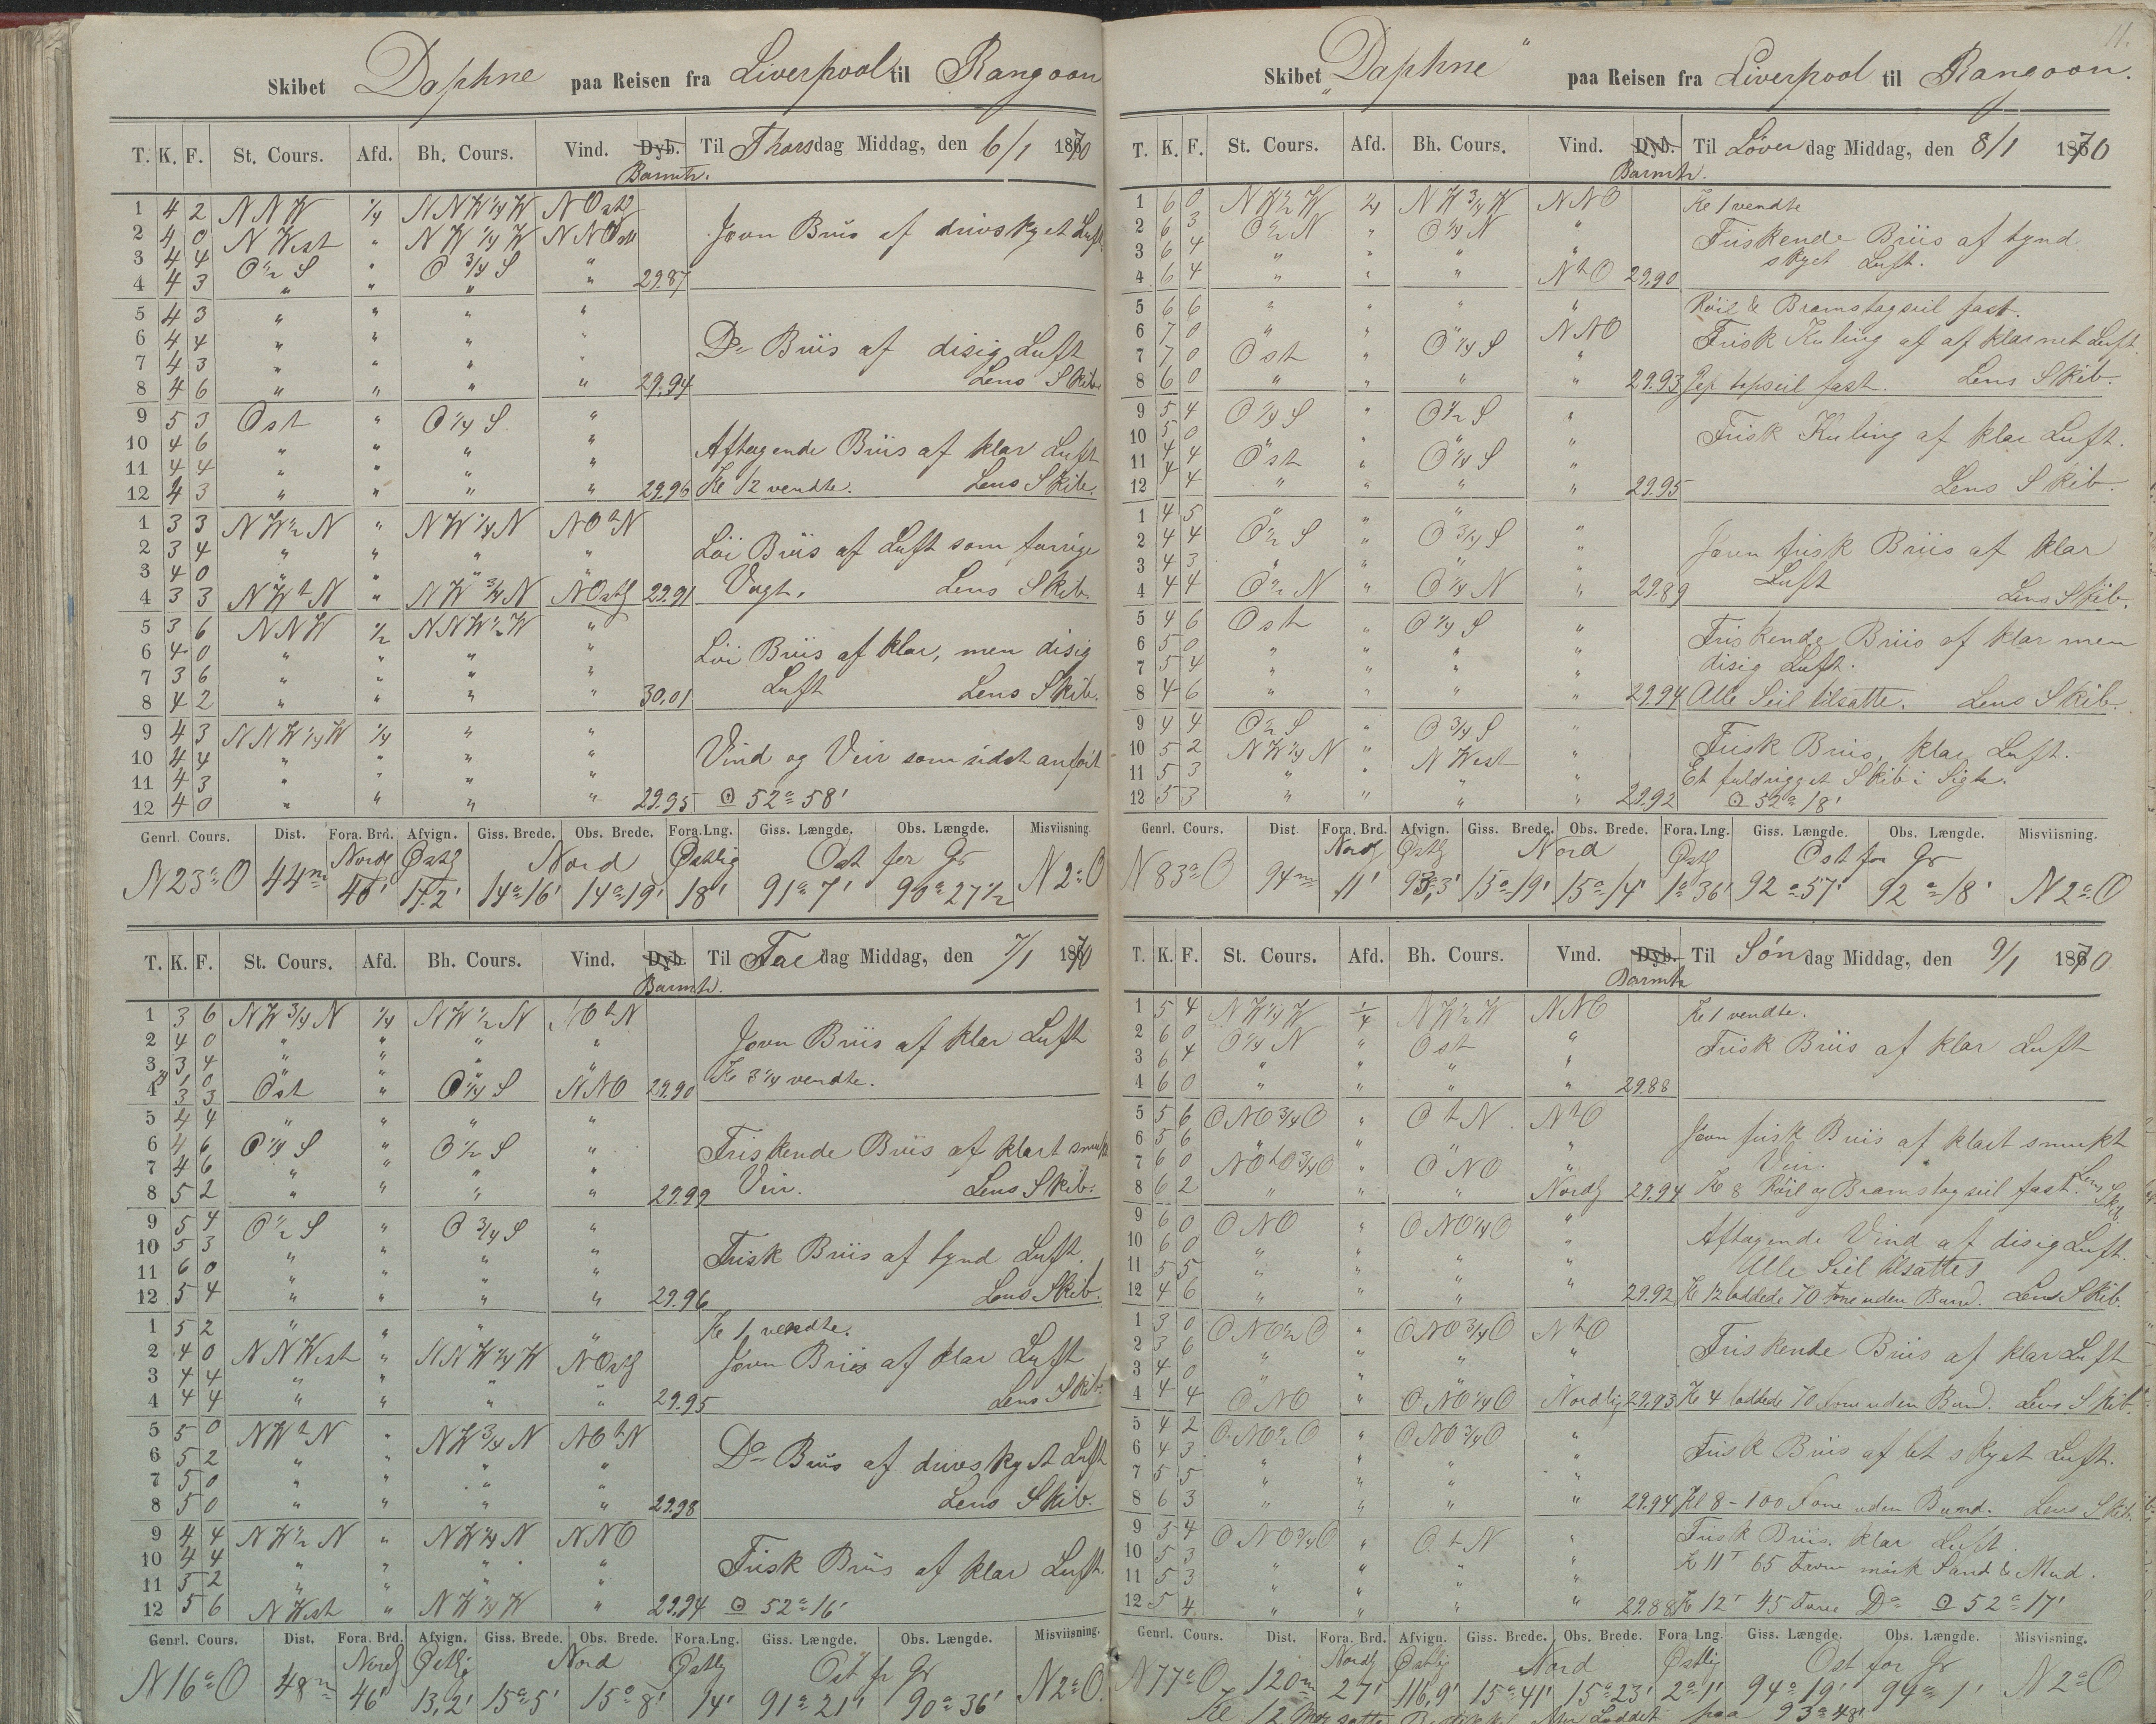 11.
Skibet Daphne paa Reisen fra Liverpool til Rangoon
T. K. F. St. Cours. Afd. Bh. Cours. Vind. Dyb. Til Thorsdag Middag, den 6/1 1870
Barmtr.
1 4 2 NNW 1/4 NNW 1/4 W NOstl
2 4 0 N West " NW 1/4 W NNOst
3 4 4 O 1/2 S " O 3/4 S "
4 4 3 " " " " 29.87
Jevn Briis af drivskyet Luft
5 4 3 " " " "
6 4 4 " " " "
7 4 3 " " " "
8 4 6 " " " " 29.94
Do Briis af disig Luft
Lens Skib.
9 5 3 Ost " O 1/4 S "
10 4 6 " " " "
11 4 4 " " " "
12 4 3 " " " " 29.96
Aftagende Briis af klar Luft
Kl 12 vendte. Lens Skib.
1 3 3 NW 1/2 N " NW 1/4 N NOtN
2 3 4 " " " "
3 4 0 " " " "
4 3 3 NWtN " NW 3/4 N NOstl 29.91
Löi Briis af Luft som forrige
Vagt. Lens Skib.
5 3 6 NNW 1/2 NNW 1/2 W "
6 4 0 " " " "
7 3 6 " " " "
8 4 2 " " " " 30.01
Löi Briis af klar, men disig
Luft Lens Skib.
9 4 3 NNW 1/4 W 1/4 " "
10 4 4 " " " "
11 4 3 " " " "
12 4 0 " " " " 29.95
Vind og Veir som sidst anført
52° 58'
Genrl. Cours. Dist. Fora. Brd. Afvign. Giss. Brede. Obs. Brede. Fora. Lng. Giss. Længde. Obs. Længde. Misviisning.
Nordl Østl Nord Østlig Ost for Gr
N 23° O 44m 40' 17.2' 14° 16' 14° 19' 18' 91° 7' 90° 27 1/2 N 2° O
T. K. F. St. Cours. Afd. Bh. Cours. Vind. Dyb. Til Fredag Middag, den 7/1 1870
Barmtr.
1 3 6 NW 3/4 N 1/4 NW 1/2 N NOtN
2 4 0 " " " "
3 3 4 " " " "
1 0
4 3 3 Ost " O 1/4 S NNO 29.90
Jevn Briis af klar Luft
Kl 3 1/4 vendte.
5 4 4 " " " "
6 4 6 O 1/4 S " O 1/2 S "
7 4 6 " " " "
8 5 2 " " " " 29.99
Friskende Briis af klart smukt
Veir. Lens Skib.
9 5 4 O 1/2 S " O 3/4 S "
10 5 3 " " " "
11 6 0 " " " "
12 5 4 " " " " 29.96
Frisk Briis af tynd Luft.
Lens Skib.
1 5 2 " " " "
2 4 0 NNWest " NNW 1/4 W NOstl
3 4 4 " " " "
4 4 4 " " " " 29.95
Kl 1 vendte.
Jevn Briis af klar Luft
Lens Skib.
5 5 0 NWtN " NW 3/4 N NOtN
6 5 2 " " " "
7 5 0 " " " "
8 5 0 " " " " 29.98
Do Briis af drivskyet Luft
Lens Skib.
9 4 4 NW 1/2 N " NW 1/4 N NNO
10 4 4 " " " "
11 5 2 " " " "
12 5 6 N West " NW 1/4 W " 29.94
Frisk Briis af klar Luft.
52° 16'
Genrl. Cours. Dist. Fora. Brd. Afvign. Giss. Brede. Obs. Brede. Fora. Lng. Giss. Længde. Obs. Længde. Misviisning.
Nordl Østlig Nord Østlig Ost fr Gr
N 16° O 48m 46' 13,2' 15° 5' 15° 8' 14' 91° 21' 90° 36' N 2° O.
Skibet "Daphne" paa Reisen fra Liverpool til Rangoon.
T. K. F. St. Cours. Afd. Bh. Cours. Vind. Dyb. Til Løverdag Middag, den 8/1 1870
Barmtr.
1 6 0 NW 1/2 W 1/4 NW 3/4 W NNO
2 6 3 O 1/2 N " O 1/4 N "
3 6 4 " " " "
4 6 4 " " " NtO 29,90
Kl 1 vendte
Friskende Briis af tynd
skyet Luft.
5 6 6 " " " "
6 7 0 " " " NNO
7 7 0 Ost " O 1/4 S "
8 6 0 " " " " 29.93
Röil & Bramstagseil fast.
Frisk Kuling af afklarnet Luft.
topseil fast. Lens Skib.
9 5 4 O 1/4 S " O 1/2 S "
10 5 0 " " " "
11 4 4 Ost " O 1/4 S "
12 4 4 " " " " 29.95
Frisk Kuling af klar Luft.
Lens Skib.
1 4 5 " " " "
2 4 4 O 1/2 S " O 3/4 S "
3 4 3 " " " "
4 4 4 O 1/2 N " O 1/4 N " 29.89
Jevn frisk Briis af klar
Luft Lens Skib.
5 4 6 Ost " O 1/4 S "
6 5 0 " " " "
7 5 4 " " " "
8 4 6 " " " " 29.94
Friskende Briis af klar men
disig Luft.
Alle Seil tilsatte. Lens Skib.
9 4 4 O 1/2 S " O 3/4 S "
10 5 2 NW 1/4 N " N West "
11 5 3 " " " "
12 5 3 " " " " 29.92
Frisk Briis, klar Luft.
Et fuldrigget Skib i Sigte.
52° 18'
Genrl. Cours. Dist. Fora. Brd. Afvign. Giss. Brede. Obs. Brede. Fora. Lng. Giss. Længde. Obs. Længde. Misviisning.
Nordl Østl Nord Østl Ost for Gr
N 83° O 94m 11' 93,3' 15° 19' 15° 14' 1° 36' 92° 57' 92° 18' N 2° O
T. K. F. St. Cours. Afd. Bh. Cours. Vind. Dyb. Til Søndag Middag, den 9/1 1870
Barmtr
1 5 4 NW 1/4 W 1/4 NW 1/2 W NNO
2 6 0 O 1/4 N " Ost "
3 6 4 " " " "
4 6 0 " " " " 29.88
Kl 1 vendte.
Frisk Briis af klar Luft
5 5 6 ONO 3/4 O " OtN NtO
6 5 6 " " " "
7 6 0 NOtO 3/4 O " ONO "
8 6 2 " " " Nordl 29.94
Jevn frisk Briis af klart smukt
Veir.
Kl 8 Röil og Bramstagseil fast. Lens Skib.
9 6 0 ONO " ONO 1/4 O "
10 6 0 " " " "
11 5 5 " " " "
12 4 6 " " " " 29.92
Aftagende Vind af disig Luft.
Alle Seil tilsatte
Kl 12 loddede 70 Favne uden Bund. Lens Skib.
1 3 0 ONO 1/2 O " ONO 3/4 O NtO
2 3 6 " " " "
3 4 0 " " " "
4 4 4 ONO " ONO 1/4 O Nordlig 29.93
Friskende Briis af klar Luft
Kl 4 loddede 70 Favne uden Bund. Lens Skib.
5 4 2 ONO 1/2 O " ONO 3/4 O "
6 4 3 " " " "
7 5 5 " " " "
8 6 3 " " " " 29.94
Frisk Briis af let skyet Luft.
Kl 8 - 100 Favne uden Bund. Lens Skib.
9 5 4 ONO 3/4 O " OtN "
10 5 3 " " " "
11 5 3 " " " "
12 5 4 " " " " 29.88
Frisk Briis. klar Luft.
Kl 11 65 Favne mörk Sand & Mud.
Kl 12 45 Favne Do 52° 17'
Genrl. Cours. Dist. Fora. Brd. Afvign. Giss. Brede. Obs. Brede. Fora Lng. Giss. Længde. Obs. Længde. Misvisning.
Nordl Østlig Nord Østlig Ost for Gr
N 77° O 120m 27' 116,9' 15° 41' 15° 23' 2° 1' 94° 19' 94° 1' N 2° O
Kl 12 satte efter Loddet paa 93° 48'